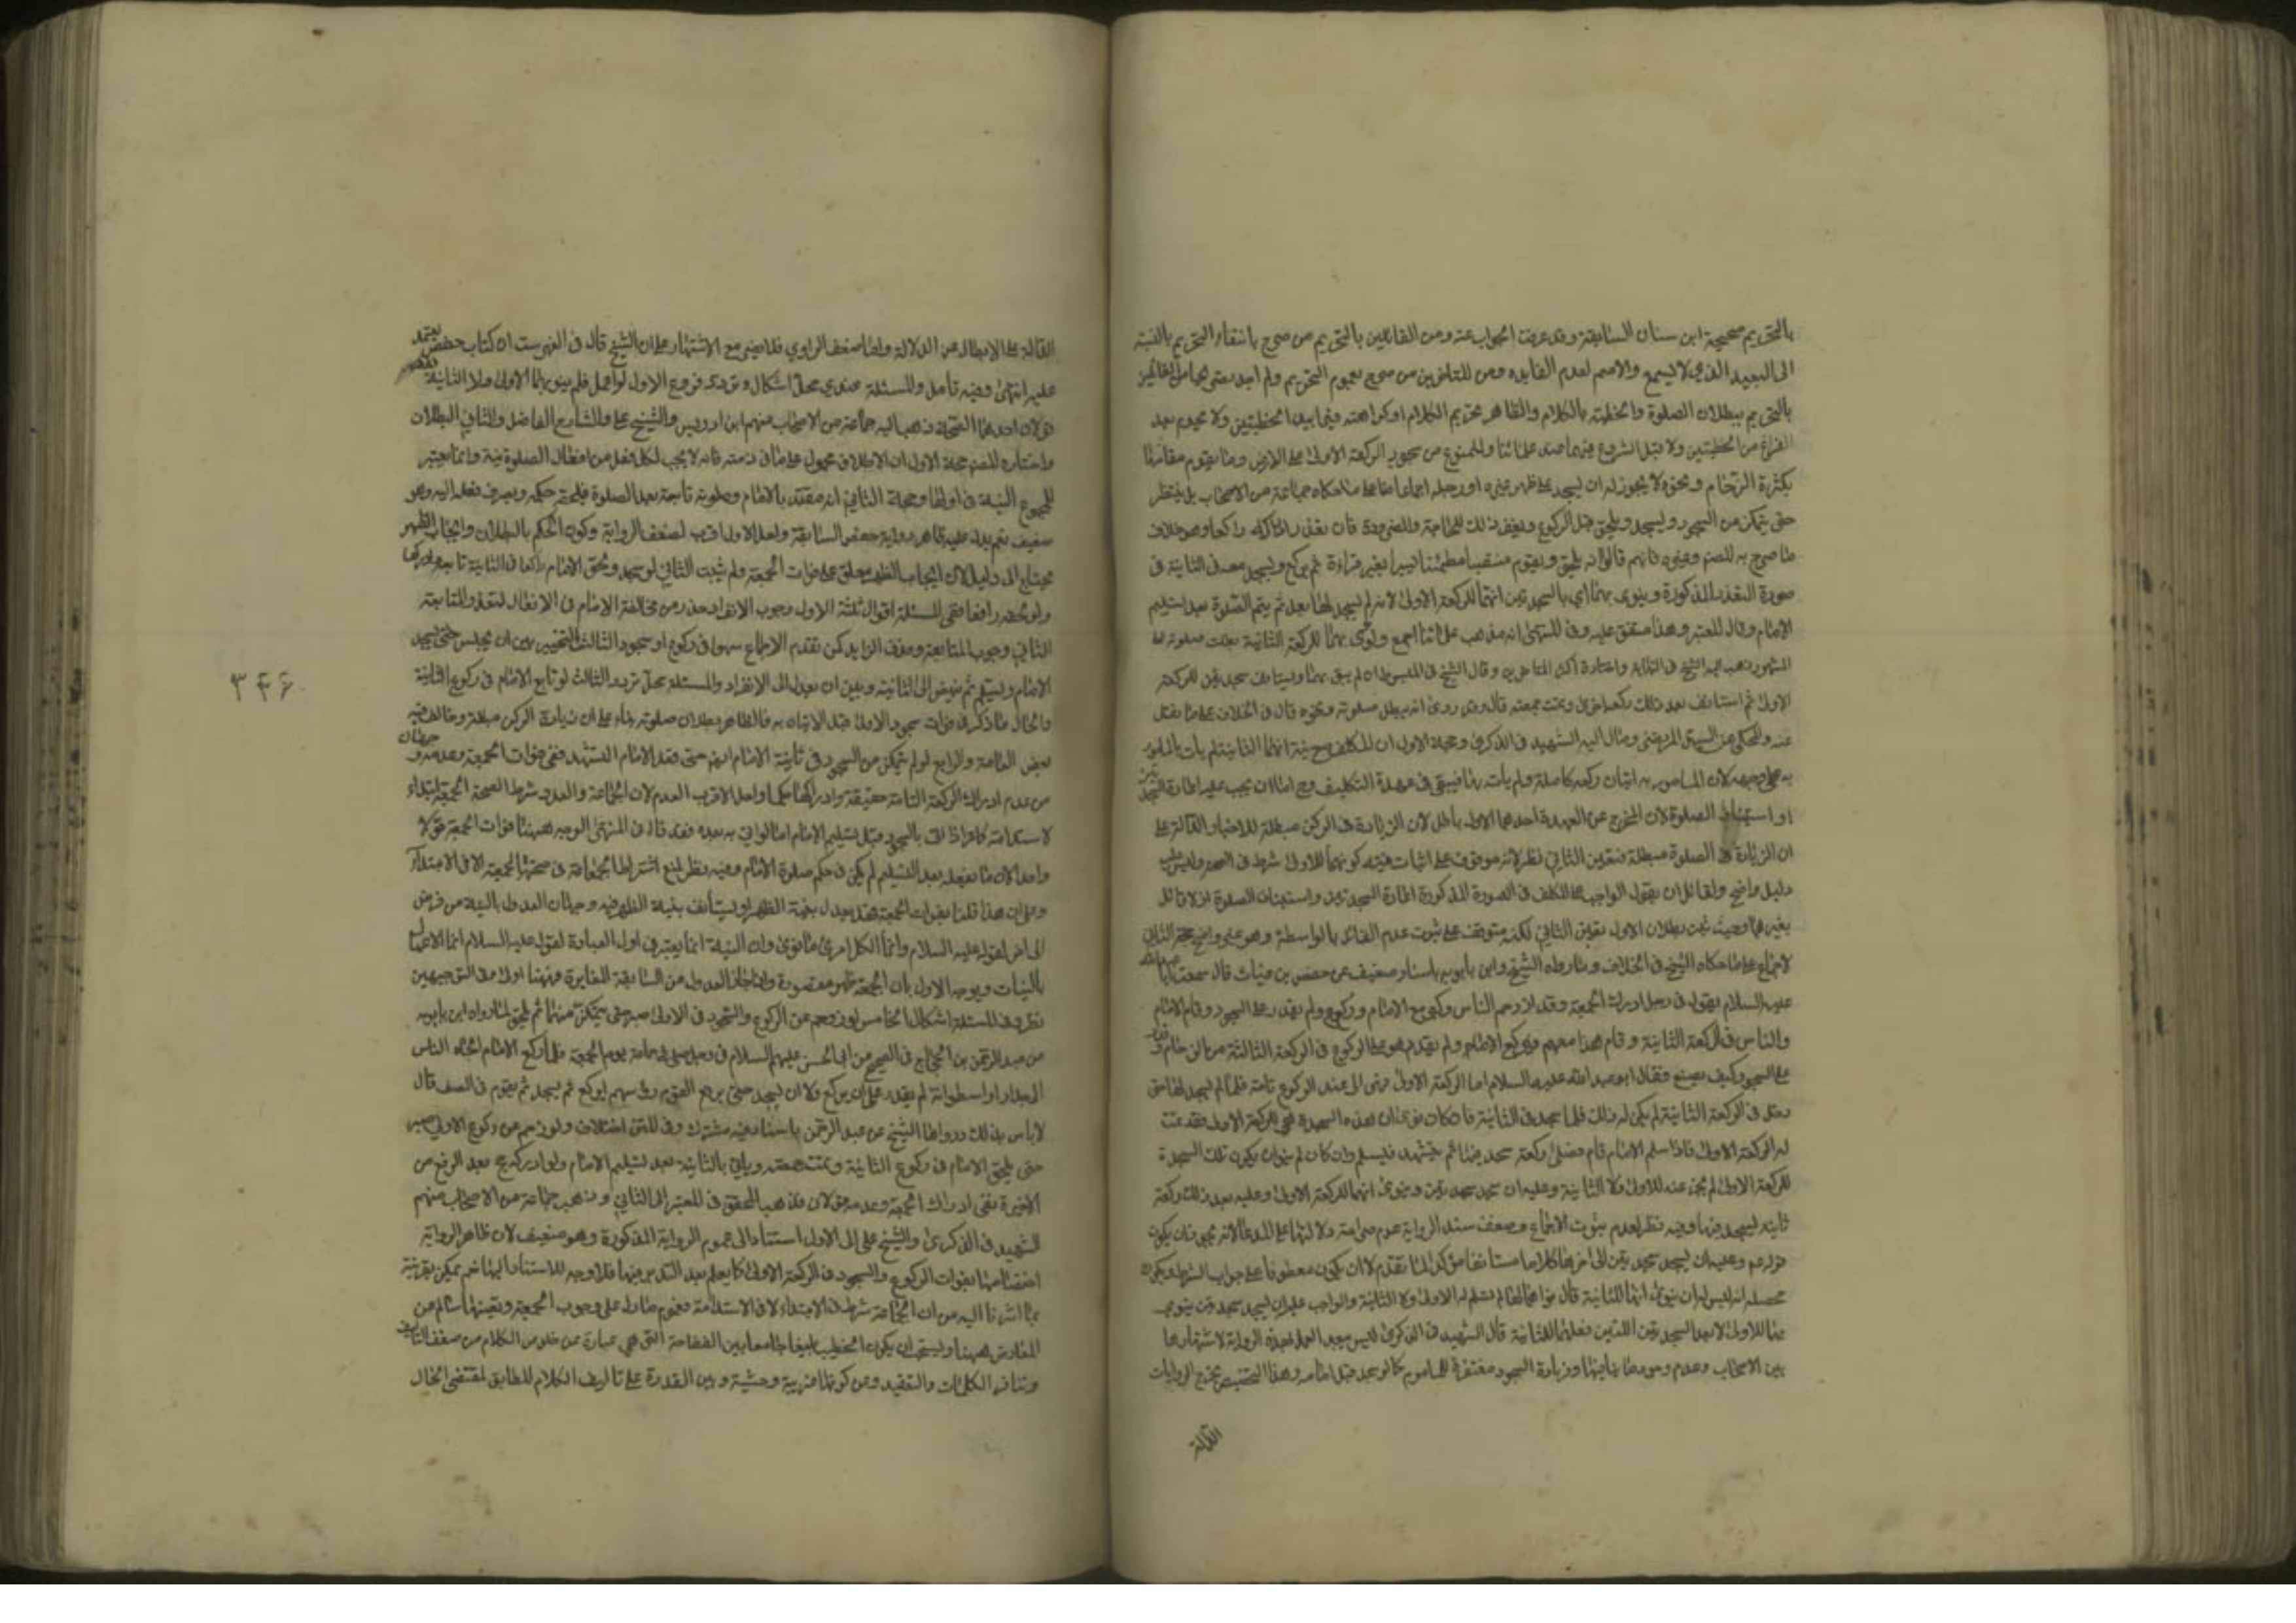 بالتحريم صحيحة ابن سنان السابقة وقد عرفت الجواب عنه ومن القائلين بالتحريم من صرح بانتفاء التحريم بالنسبة
الى البعيد الذي لا يسمع والاصم لعدم الفايده ومن المتاخرين من صرح بعموم التحريم ولم اجد
بالتحريم ببطلان الصلوة والخطبة بالكلام والظاهر تحريم الكلام او كراهته فيما بين الخطبتين ولا يحرم بعد
الفراغ من الخطبتين ولا قبل الشروع فيهما عند علمائنا والممنوع من سجود الركعة الاولى على الارض وما يقوم مقامها
بكثرة الزحام ونحوه لا يجوز له ان يسجد على ظهر غيره او رجله اجماعا منا على ما حكاه جماعة من الاصحاب بل ينتظر
حتى يتمكن من السجود ويسجد ويلحق قبل الركوع ويغفر ذلك للحاجة والضرورة فان تعذر راكعا وهو خلاف
ما صرح به المصنف وغيره فانهم قالوا انه يلحق ويقوم منتصبا مطمئنا يسيرا بغير قراءة ثم يركع ويسجد معه في الثانية في
صورة التعذر المذكورة وينوى بهما اي بالسجدتين انهما للركعة الاولى لانه لم يسجد لها بعد ثم يتم الصلوة بعد تسليم
الامام وقال في المعتبر وهذا متفق عليه وفي المنتهى انه مذهب علمائنا اجمع ولو نوى بهما للركعة الثانية بطلت صلوته على
المشهور ذهب اليه الشيخ في النهاية واختاره اكثر المتاخرين وقال الشيخ في المبسوط ان لم ينو بهما ويستانف سجدتين للركعة
الاولى ثم استانف بعد ذلك ركعة اخرى وتمت جمعته قال وقد روى انه يبطل صلوته ونحوه قال في الخلاف على ما نقل
عنه والمحكي عن السيد المرتضى ومال اليه الشهيد في الذكرى وحجة الاول ان المكلف مع نية انهما الثانية لم يات بالمامور
به على وجهه لان المامور به اتيان ركعة كاملة ولم يات بها فيبقى في عهدة التكليف وح اما ان يجب عليه اعادة السجدتين
او استيناف الصلوة لان المخرج عن العهدة احدهما الاول باطل لان الزيادة في الركن مبطلة للاخبار الدالة على
ان الزيادة في الصلوة مبطلة فتعين الثاني نظر لانه موقوف على اثبات نية كونهما للاولى شرط في الصحة وليس عليه
دليل واضح ولقائل ان يقول الواجب على المكلف في الصورة المذكورة اعادة السجدتين واستيناف الصلوة اذ لا قائل
بغيرهما وحيث ثبت بطلان الاول تعين الثاني لكنه متوقف على ثبوت عدم القائل بالواسطة وهو غير واضح حجة الثاني
الاجماع على ما حكاه الشيخ في الخلاف وما رواه الشيخ وابن بابويه باسناد ضعيف عن حفص بن غياث قال سمعت ابا عبد الله
عليه السلام يقول في رجل ادرك الجمعة وقد ازدحم الناس وكبر مع الامام وركع ولم يقدر على السجود وقام الامام
والناس في الركعة الثانية وقام هذا معهم فركع الامام ولم يقدر هو على الركوع في الركعة الثانية من الزحام وقدر
على السجود كيف يصنع فقال ابو عبد الله عليه السلام اما الركعة الاولى فهي الى عند الركوع تامة فلما لم يسجد لها حتى
دخل في الركعة الثانية لم يكن له ذلك فلما سجد في الثانية فان كان نوى ان هذه السجدة هي للركعة الاولى فقد تمت
له الركعة الاولى فاذا سلم الامام قام فصلى ركعة سجد فيها ثم يتشهد فيسلم وان كان لم ينو ان يكون تلك السجدة
للركعة الاولى لم يجز عنه للاولى ولا الثانية وعليه ان يسجد سجدتين وينوى انهما للركعة الاولى وعليه بعد ذلك ركعة
ثانية يسجد فيها وفيه نظر لعدم ثبوت الاجماع وضعف سند الرواية وعدم صراحة دلالتها على المدعا لانه يجوز ان يكون
قوله وعليه ان يسجد سجدتين الى اخره كلاما مستانفا مؤكدا لما تقدم لا ان يكون معطوفا على جواب الشرط ويكون
محصله انه ليس له ان ينوي انهما للثانية لم يسلم له الاولى ولا الثانية والواجب عليه ان يسجد سجدتين ينوي
بهما للاولى لا بعد السجدتين اللتين فعلهما للثانية قال الشهيد في الذكرى ليس ببعيد العمل بهذه الرواية لاشتهارها
بين الاصحاب وعدم وجود ما ينافيها وزيادة السجود مغتفرة للماموم كما لو سجد قبل امامه وهذا التخصيص يخرج الروايات
الدالة
الدالة على الابطال عن الدلالة واما ضعف الراوي فلا يضر مع الاشتهار على ان الشيخ قال في الفهرست ان كتاب حفص يعتمد
عليه انتهى وفيه تأمل والمسئلة عندي محل اشكال فروع الاول لو اهمل فلم ينو بهما الاولى ولا الثانية ففيه
قولان احدهما الصحة ذهب اليه جماعة من الاصحاب منهم ابن ادريس والشيخ على والشارح الفاضل والثاني البطلان
واختاره المصنف حجة الاول ان الاطلاق محمول على ما في ذمته فانه لا يجب لكل فعل من افعال الصلوة نية وانما يعتبر
للمجموع النية في اولها وحجة الثاني انه مقتد بالامام وصلوته تابعة بعد الصلوة فيلحقه حكمه ويصرف فعله اليه وهو
ضعيف نعم يدل عليه ظاهر رواية حفص السابقة ولعل الاول اقرب لضعف الرواية وكون الحكم بالبطلان وايجاب الظهر
يحتاج الى دليل لان ايجاب الظهر معلق على فوات الجمعة ولم يثبت الثاني لو سجد ولحق الامام راكعا في الثانية تابعه
ولو لحقه رافعا ففي المسئلة اقوال ثلثة الاول وجوب الانفراد حذرا من مخالفة الامام في الافعال لتعذر المتابعة
الثاني وجوب المتابعة وحذف الزايد كمن تقدم الامام سهوا في ركوع او سجود الثالث التخيير بين ان يجلس حتى يسجد
الامام ويسلم ثم ينهض الى الثانية وبين ان يعدل الى الانفراد والمسئلة محل تردد الثالث لو تابع الامام في ركوع الثانية
والحال ما ذكر في فوات سجود الاولى قبل الاتيان به فالظاهر بطلان صلوته بناء على ان زيادة الركن مبطلة وخالف فيه
بعض العامة والرابع لو لم يتمكن من السجود في ثانية الامام ايضا حتى قعد الامام للتشهد ففي فوات الجمعة وعدمه وجهان
من عدم ادراك الركعة التامة حقيقة وادراكها حكما ولعل الاقرب العدم لان الجماعة والعدد شرط لصحة الجمعة ابتداء
لا استدامة كما اذا اتى بالسجود قبل تسليم الامام اما لو اتى به بعده فقد قال في المنتهى الوجه ههنا فوات الجمعة قولا
واحدا لان ما يفعله بعد التسليم لم يكن في حكم صلوة الامام وفيه نظر لمنع اشتراط الجماعة في صحة الجمعة الا في الابتداء
وعلى هذا قلنا بفوات الجمعة فهل يعدل بنية الظهر او يستأنف بنية الظهر فيه وجهان العدول بالنية من فرض
الى اخر لقوله عليه السلام وانما لكل امرئ ما نوى وان النية انما يعتبر في اول العبادة لقوله عليه السلام انما الاعمال
بالنيات ويوجه الاول بان الجمعة ظهر مقصورة واذا جاز العدول من السابقة المغايرة فههنا اولى وفي التوجيهين
نظر وفي المسئلة اشكال الخامس لو زوحم عن الركوع والسجود في الاولى صبر حتى يتمكن منهما ثم يلحق لما رواه ابن بابويه
عن عبد الرحمن بن الحجاج في الصحيح عن ابي الحسن عليه السلام في رجل صلى في جماعة يوم الجمعة فلما ركع الامام الجأه الناس
الى جدار او اسطوانة لم يقدر على ان يركع ولا ان يسجد حتى رفع القوم رؤسهم ايركع ثم يسجد ثم يقوم في الصف قال
لا باس بذلك ورواها الشيخ عن عبد الرحمن باسناد فيه مشترك وفي المتن اختلاف ولو زوحم عن ركوع الاولى صبر
حتى يلحق الامام في ركوع الثانية وتمت جمعته ويأتي بالثانية بعد تسليم الامام ولو ادركه بعد الرفع من
الاخيرة ففي ادراك الجمعة وعدمه قولان فذهب المحقق في المعتبر الى الثاني وذهب جماعة من الاصحاب منهم
الشهيد في الذكرى والشيخ على الى الاول استنادا الى عموم الرواية المذكورة وهو ضعيف لان ظاهر الرواية
اختصاصها بفوات الركوع والسجود في الركعة الاولى كما يعلم بعد التدبر فيها فلا وجه للاستناد اليها نعم يمكن تقويته
بما اشرنا اليه من ان الجماعة شرط في الابتداء لا في الاستدامة فعموم ما دل على وجوب الجمعة وتعينها سالم عن
المعارض ههنا ويستحب ان يكون الخطيب بليغا جامعا بين الفصاحة التي هي عبارة عن خلوص الكلام من ضعف التاليف
وتنافر الكلمات والتعقيد وعن كونها غريبة وحشية وبين القدرة على تاليف الكلام المطابق لمقتضى الحال
۳۴۶